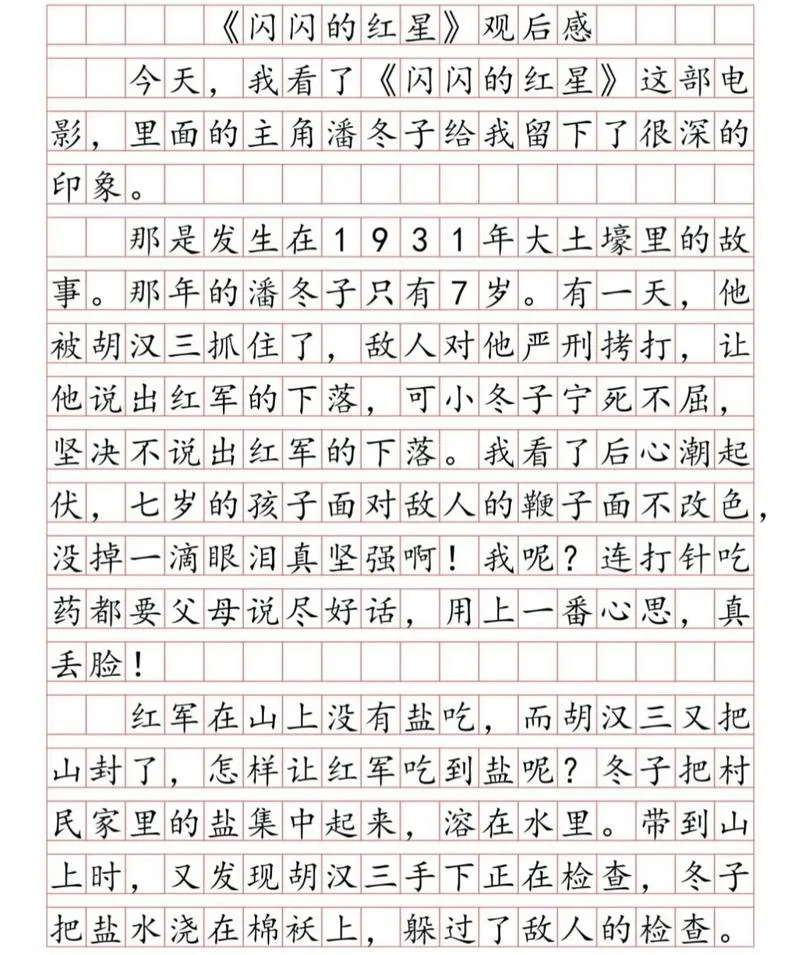 《闪闪的红星》观后感
今天，我看了《闪闪的红星》这部电
影，里面的主角潘冬子给我留下了很深的
印象。
那是发生在1931年大土壕里的故
事。那年的潘冬子只有7岁。有一天，他
被胡汉三抓住了，敌人对他严刑拷打，让
他说出红军的下落，可小冬子宁死不屈，
坚决不说出红军的下落。我看了后心潮起
伏，七岁的孩子面对敌人的鞭子面不改色，
没掉一滴眼泪真坚强啊！我呢？连打针吃
药都要父母说尽好话，用上一番心思，真
丢脸！
红军在山上没有盐吃，而胡汉三又把
山封了，怎样让红军吃到盐呢？冬子把村
民家里的盐集中起来，溶在水里。带到山
上时，又发现胡汉三手下正在检查，冬子
把盐水浇在棉袄上，躲过了敌人的检查。